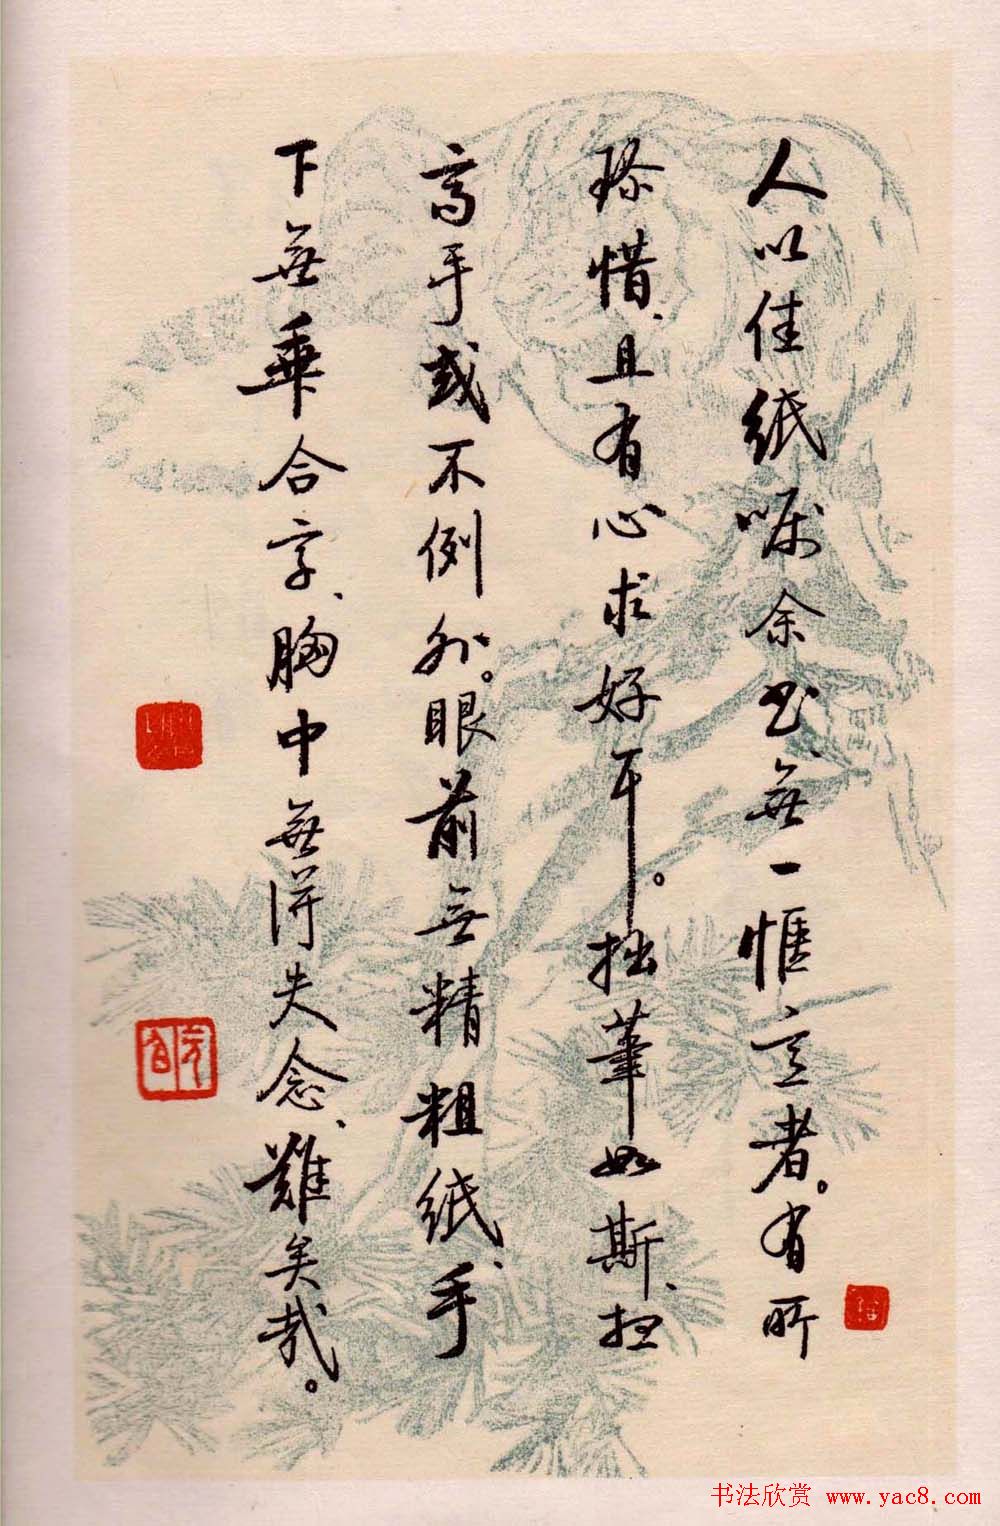 人以佳紙嘱余书、無一惬意者。有所
珍惜、且有心求好耳。拙筆如斯、想
高手或不例外。眼前无精粗紙、手
下無乖合字、胸中無得失念、難矣哉。
元白
书法欣赏 www.yac8.com